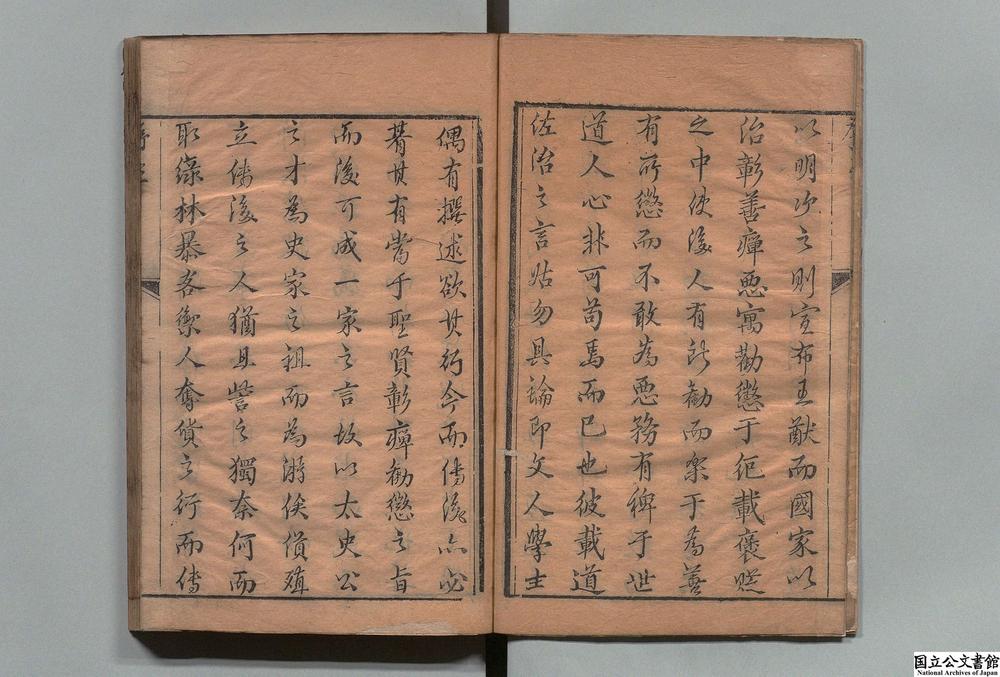 以明次之則宣布王猷而國家以
治彰善癉惡寓勸懲于紀載褒貶
之中使後人有所勸而樂于為善
有所懲而不敢為惡務有裨于世
道人心非可苟焉而已也彼載道
佐治之言姑勿具論即文人學士
偶有撰述欲其行今而傳後亦必
其有當于聖賢彰癉勸懲之旨
而後可成一家之言故以太史公
之才為史家之祖而為游俠貨殖
立傳後之人猶且訾之獨奈何而
取綠林暴客禦人奪貨之行而傳
国立公文書館
National Archives of Japan